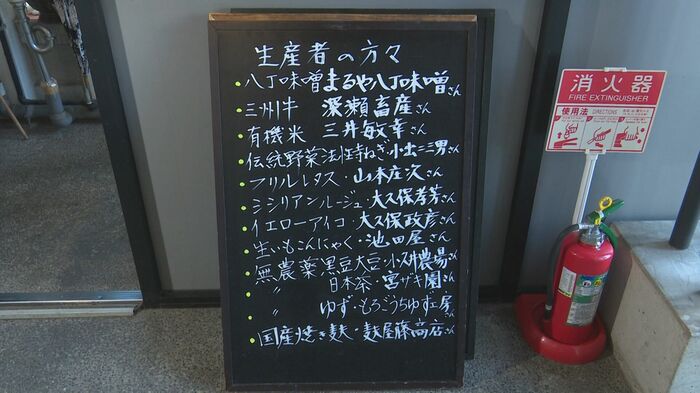 生産者の方々
八丁味噌 まるや八丁味噌さん
三州牛 深瀬畜産さん
有機米 三井敏幸さん
伝統野菜法性寺ねぎ・小出三男さん
フリルレタス・山本庄次さん
シシリアンルージュ・大久保孝芳さん
イエローアイコ・大久保政彦さん
生いもこんにゃく・池田屋さん
無農薬黒豆大豆・小久井農場さん
〃 日本茶・宮ザキ園さん
〃 ゆず・もろごうちゆず工房さん
国産焼き麩・麩屋藤商店さん
消火器
FIRE EXTINGUISHER
使用法 DIRECTIONS